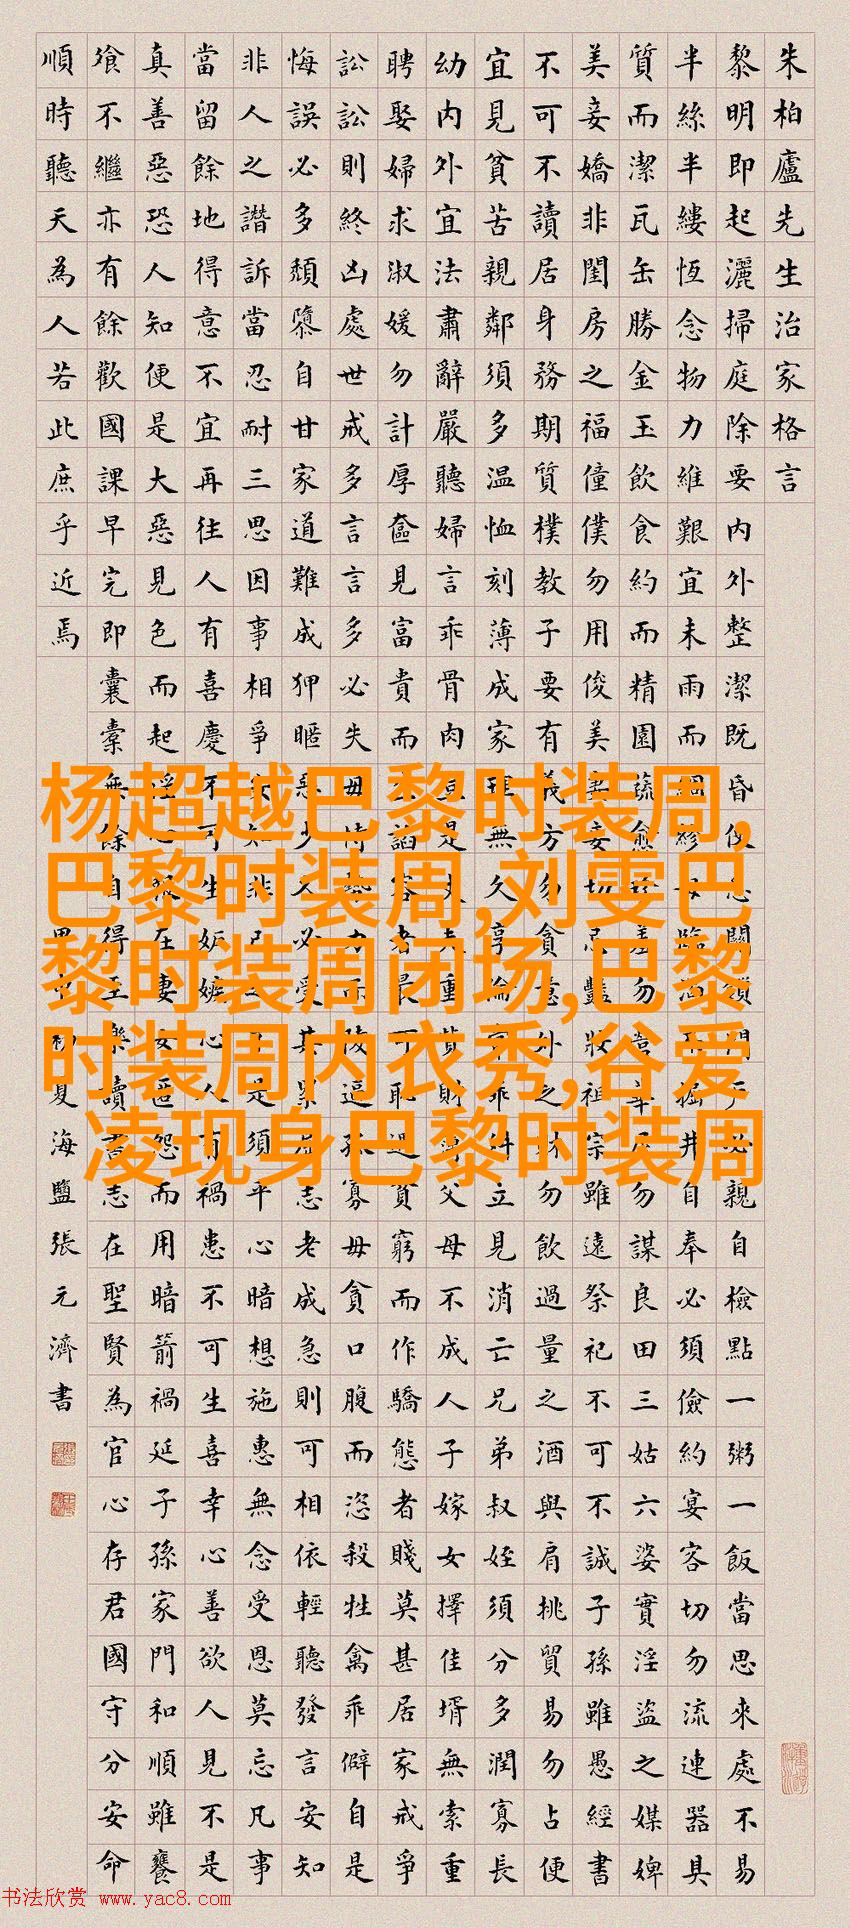 朱柏廬先生治家格言
黎明即起灑掃庭除要內外整潔既昏便息關鎖門戶必親自檢點一粥一飯當思來處不易
半絲半縷恆念物力維艱宜未雨而綢繆毋臨渴而掘井自奉必須儉約宴客切勿流連器具
質而潔瓦缶勝金玉飲食約而精園蔬愈珍羞勿營華屋勿謀良田三姑六婆實淫盜之媒婢
美妾嬌非閨房之福僮僕勿用俊美妻妾切忌豔妝祖宗雖遠祭祀不可不誠子孫雖愚經書
不可不讀居身務期質樸教子要有義方勿貪意外之財勿飲過量之酒與肩挑貿易勿占便
宜見貧苦親鄰須多温恤刻薄成家理無久享倫常乖舛立見消亡兄弟叔姪須分多潤寡長
幼內外宜法肅辭嚴聽婦言乖骨肉豈是丈夫重貲財薄父母不成人子嫁女擇佳壻無索重
聘娶婦求淑媛勿計厚奩見富貴而生諂容者最可恥遇貧窮而作驕態者賤莫甚居家戒爭
訟訟則終凶處世戒多言言多必失毋恃勢力而陵逼孤寡毋貪口腹而恣殺牲禽乖僻自是
悔誤必多頹隳自甘家道難成狎暱惡少久必受其累屈志老成急則可相依輕聽發言安知
非人之譖訴當忍耐三思因事相爭安知非己之不是須平心暗想施惠無念受恩莫忘凡事
當留餘地得意不宜再往人有喜慶不可生妬嫉心人有禍患不可生喜幸心善欲人見不是
真善惡恐人知便是大惡見色而起淫心報在妻女匿怨而用暗箭禍延子孫家門和順雖饔
飧不繼亦有餘歡國課早完即囊橐無餘自得至樂讀書志在聖賢為官心存君國守分安命
順時聽天為人若此庶乎近焉
初夏海鹽張元濟書
杨超越巴黎时装周,
巴黎时装周,刘雯巴
黎时装周闭场,巴黎
时装周内衣秀,谷爱
凌现身巴黎时装周
书法欣赏 www.yac8.com